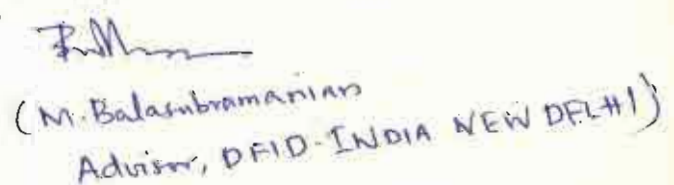 (M. Balasubramanian
Advisor, DFID-INDIA NEW DELHI)